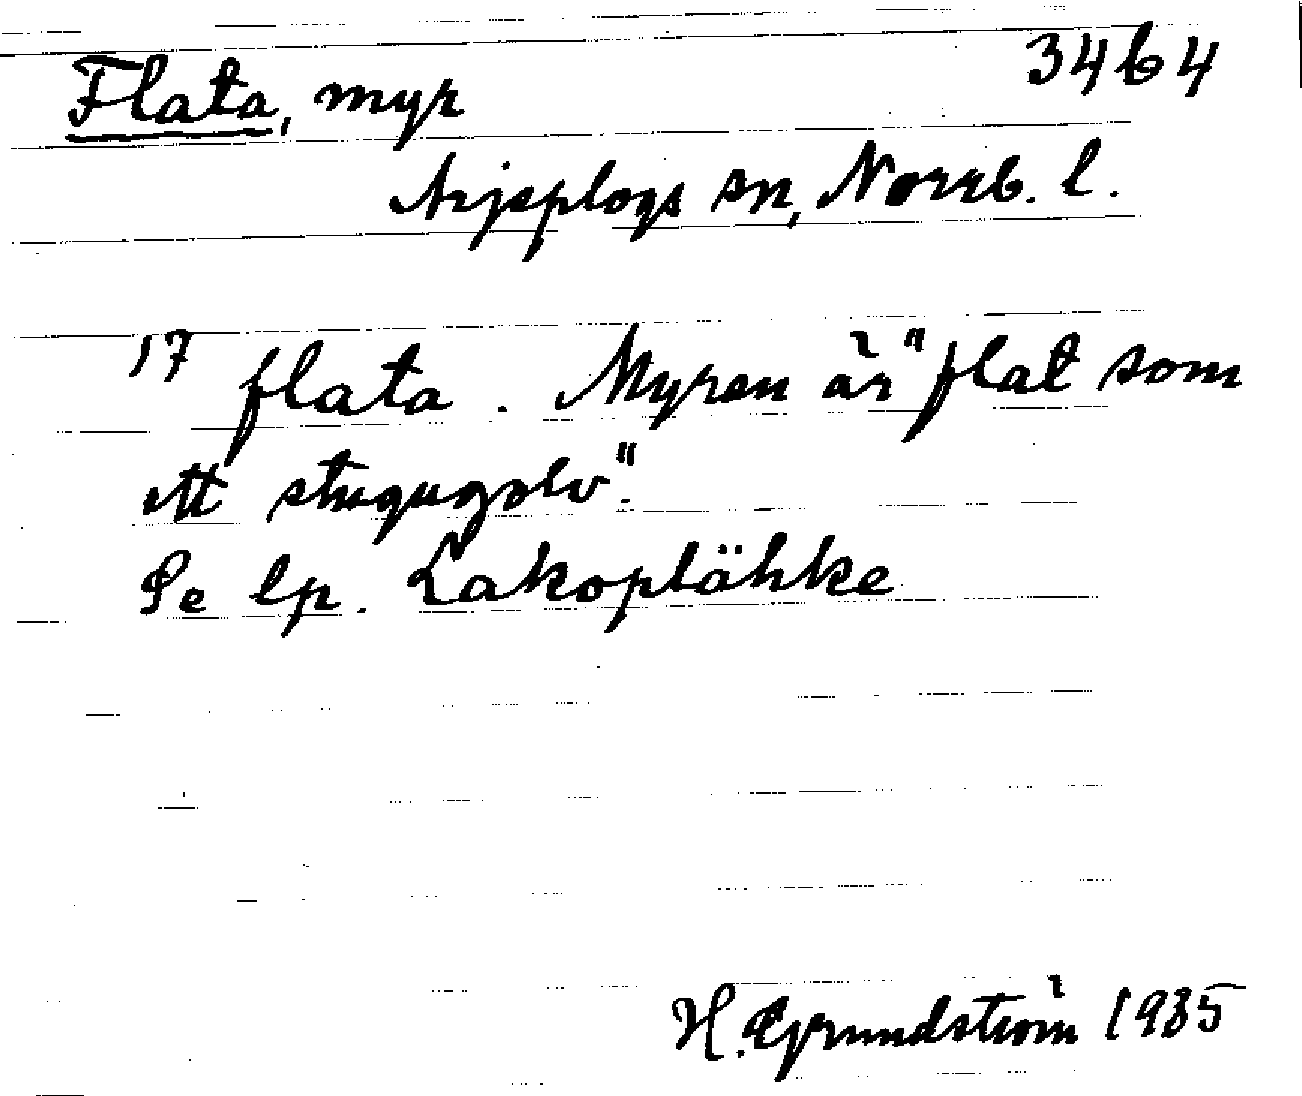 Flata, myr 3464
Arjeplogs sn, Norrb. l.
17 flata. Myren är "flat som
ett stugugolv".
Se lp. Lakoptähke
H. Grundström 1935